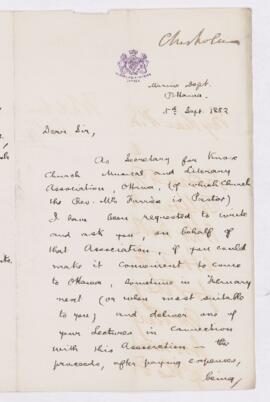 Chisholm
Marine Dept.
Ottawa
5th Sept. 1883
Dear Sir,
As Secretary for Knox
Church Musical and Literary
Association, Ottawa, (of which Church
the Rev. Mr Farries is Pastor)
I have been requested to write
and ask you, on behalf of
that Association, if you could
make it convenient to come
to Ottawa, sometime in February
next (or when most suitable
to you) and deliver one of
your Lectures in connection
with this Association — the
proceeds, after paying expenses,
being,